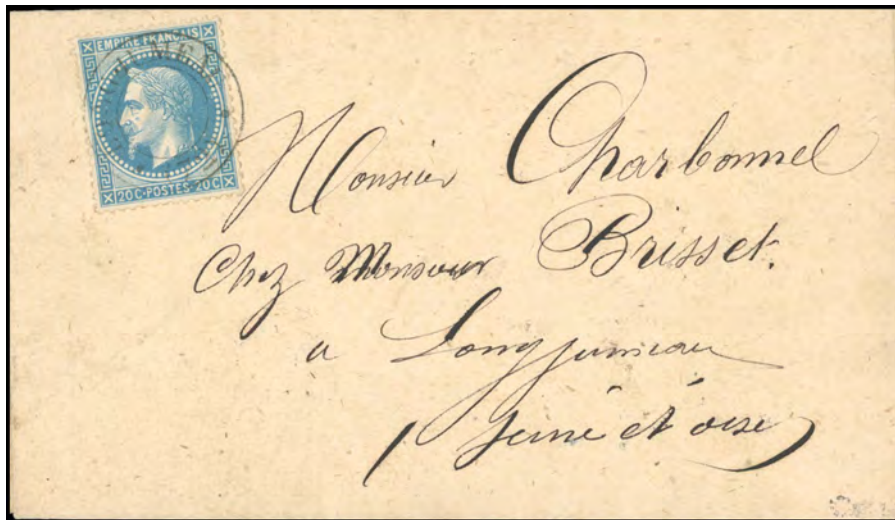 EMPIRE FRANÇAIS
20 C·POSTES·20 C
Monsieur Charbonnel
Chez Monsieur Brisset.
a Longjumeau
Seine et oise